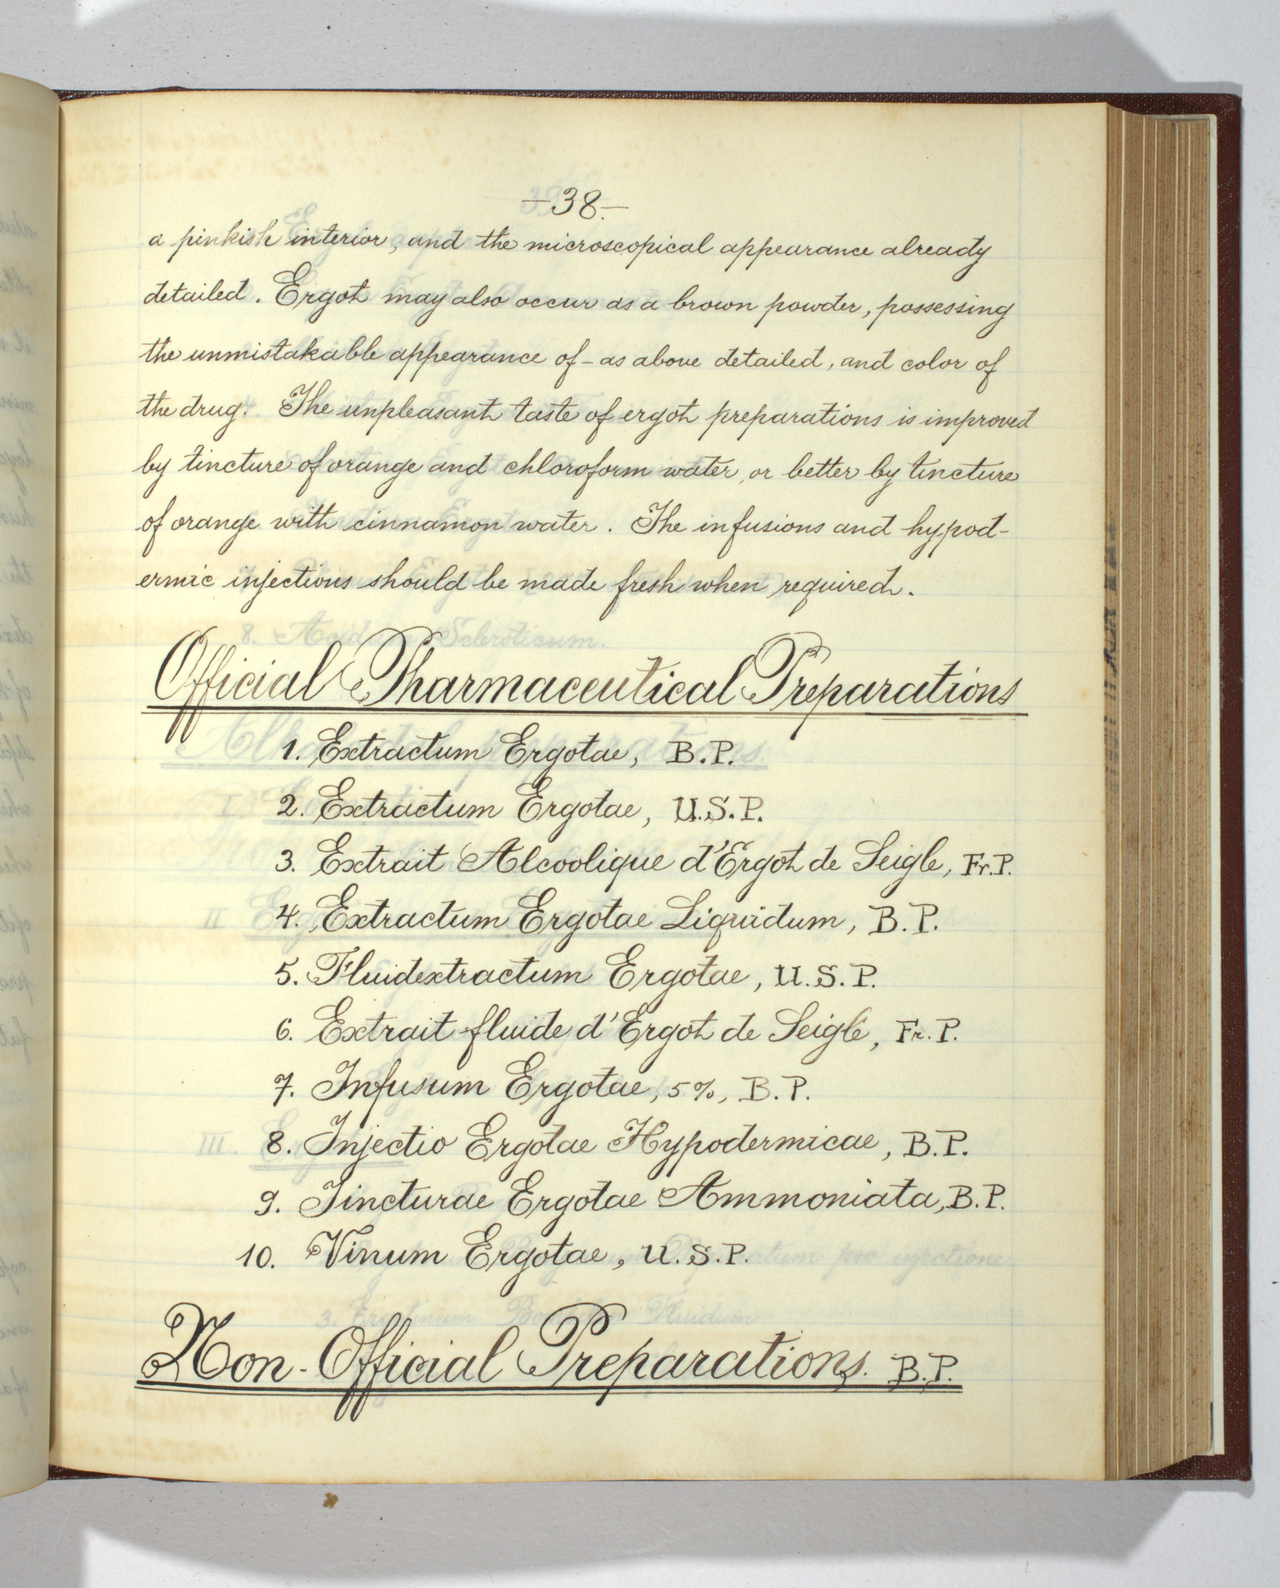 -38.-
a pinkish interior, and the microscopical appearance already
detailed. Ergot may also occur as a brown powder, possessing
the unmistakable appearance of - as above detailed, and color of
the drug. The unpleasant taste of ergot preparations is improved
by tincture of orange and chloroform water, or better by tincture
of orange with cinnamon water. The infusions and hypod-
ermic injections should be made fresh when required.
Official Pharmaceutical Preparations
1. Extractum Ergotae, B.P.
2. Extractum Ergotae, U.S.P.
3. Extrait Alcoolique d'Ergot de Seigle, Fr.P.
4. Extractum Ergotae Liquidum, B.P.
5. Fluidextractum Ergotae, U.S.P.
6. Extrait fluide d'Ergot de Seigle, Fr.P.
7. Infusum Ergotae, 5%, B.P.
8. Injectio Ergotae Hypodermicae, B.P.
9. Tincturae Ergotae Ammoniata, B.P.
10. Vinum Ergotae, U.S.P.
Non-Official Preparations. B.P.